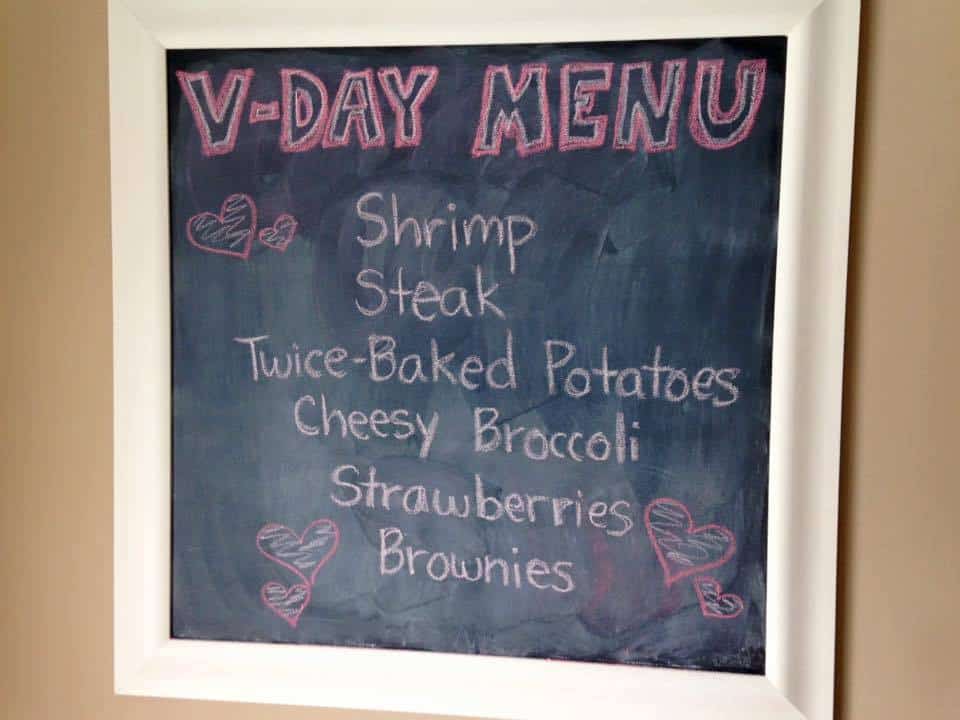 V-DAY MENU
Shrimp
Steak
Twice-Baked Potatoes
Cheesy Broccoli
Strawberries
Brownies